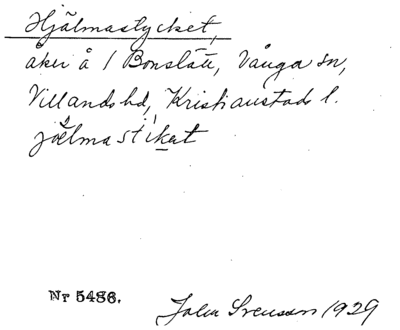 Hjälmastycket,
åker å 1 Bonslätt, Vånga sn,
Villands hd, Kristianstads l.
jälmastikat
Nr 5486.
John Svensson 1929